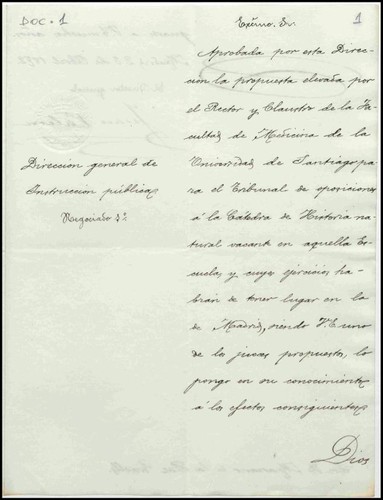 DOC. 1
1
Excmo. Sr.
Aprobada por esta Direc-
cion la propuesta elevada por
el Rector y Claustro de la Fa-
cultad de Medicina de la
Universidad de Santiago pa
ra el Tribunal de oposiciones
á la Cátedra de Historia na-
tural vacante en aquella Es-
cuela, y cuyos ejercicios ha-
brán de tener lugar en la
de Madrid, siendo V.E. uno
de los jueces propuestos, lo
pongo en su conocimiento
á los efectos consiguientes.
Dios
Direccion general de
Instruccion pública
Negociado 1º